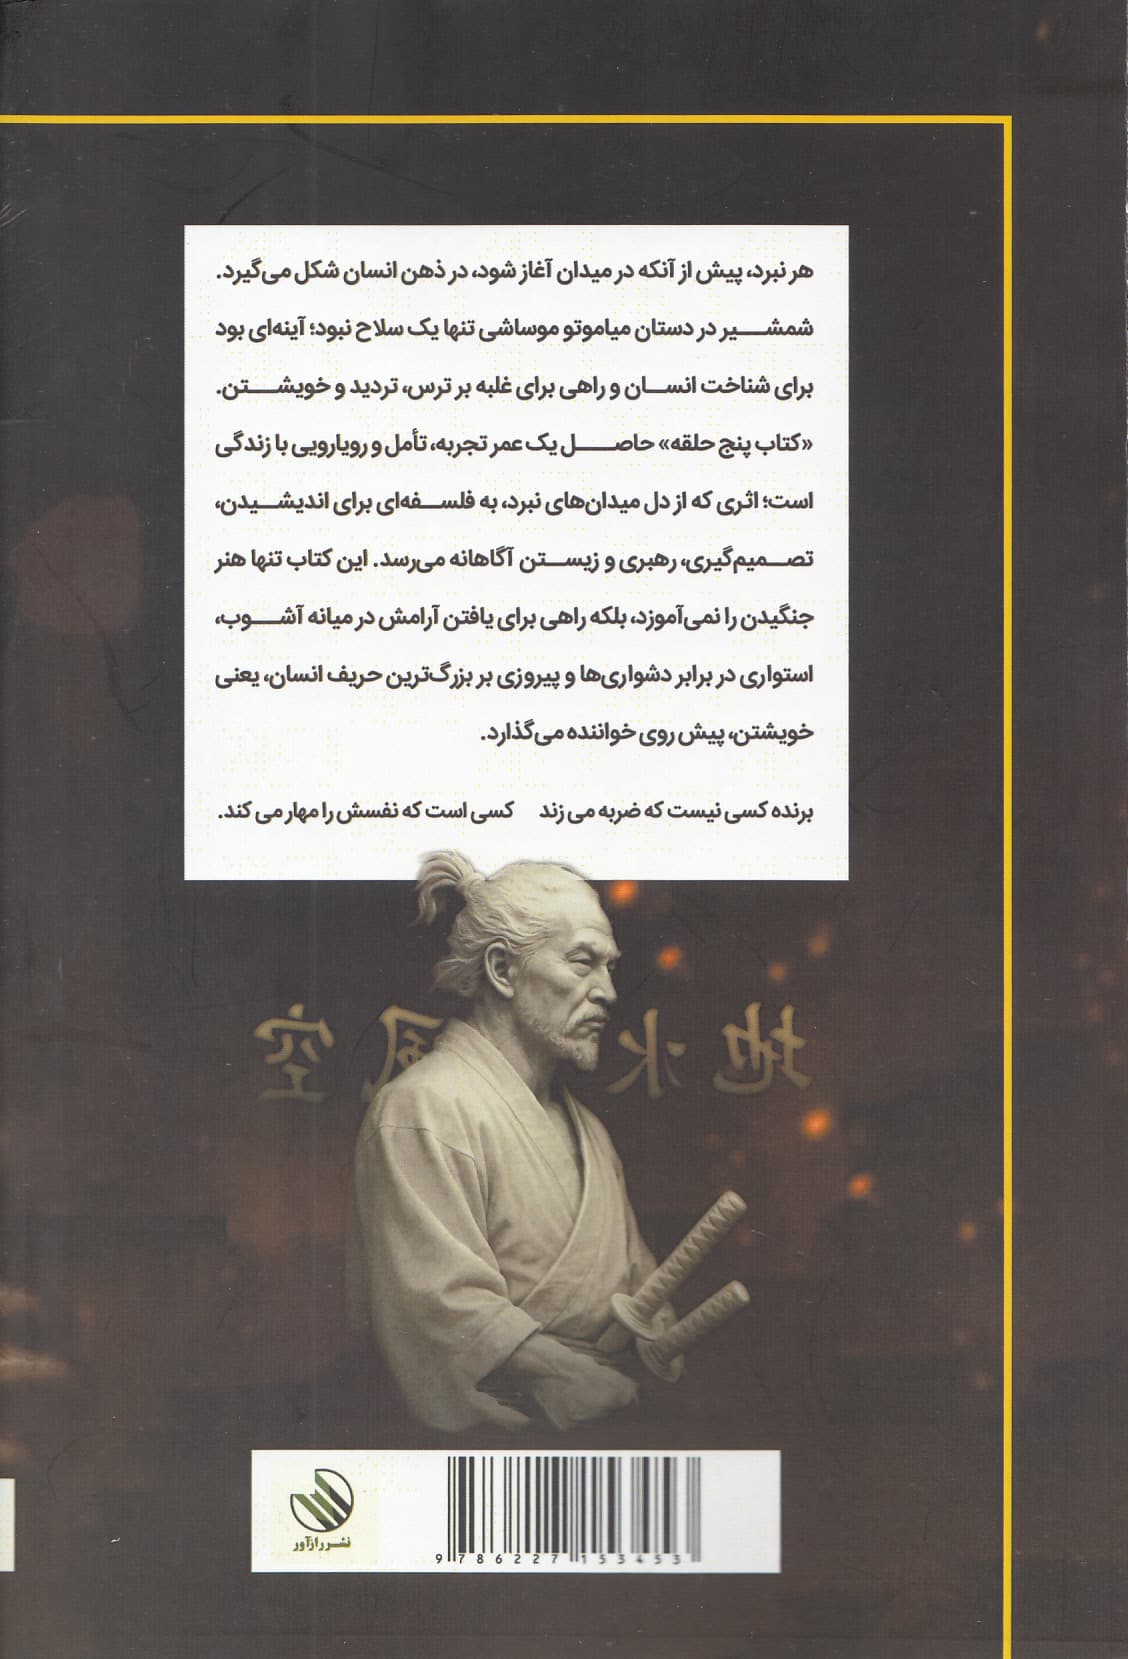 هر نبرد، پیش از آنکه در میدان آغاز شود، در ذهن انسان شکل می‌گیرد.
شمشیر در دستان میاموتو موساشی تنها یک سلاح نبود؛ آینه‌ای بود
برای شناخت انسان و راهی برای غلبه بر ترس، تردید و خویشتن.
«کتاب پنج حلقه» حاصل یک عمر تجربه، تأمل و رویارویی با زندگی
است؛ اثری که از دل میدان‌های نبرد، به فلسفه‌ای برای اندیشیدن،
تصمیم‌گیری، رهبری و زیستن آگاهانه می‌رسد. این کتاب تنها هنر
جنگیدن را نمی‌آموزد، بلکه راهی برای یافتن آرامش در میانه آشوب،
استواری در برابر دشواری‌ها و پیروزی بر بزرگ‌ترین حریف انسان، یعنی
خویشتن، پیش روی خواننده می‌گذارد.
برنده کسی نیست که ضربه می زند کسی است که نفسش را مهار می کند.
地水 風空
نشر رازآور
9 786227 153453